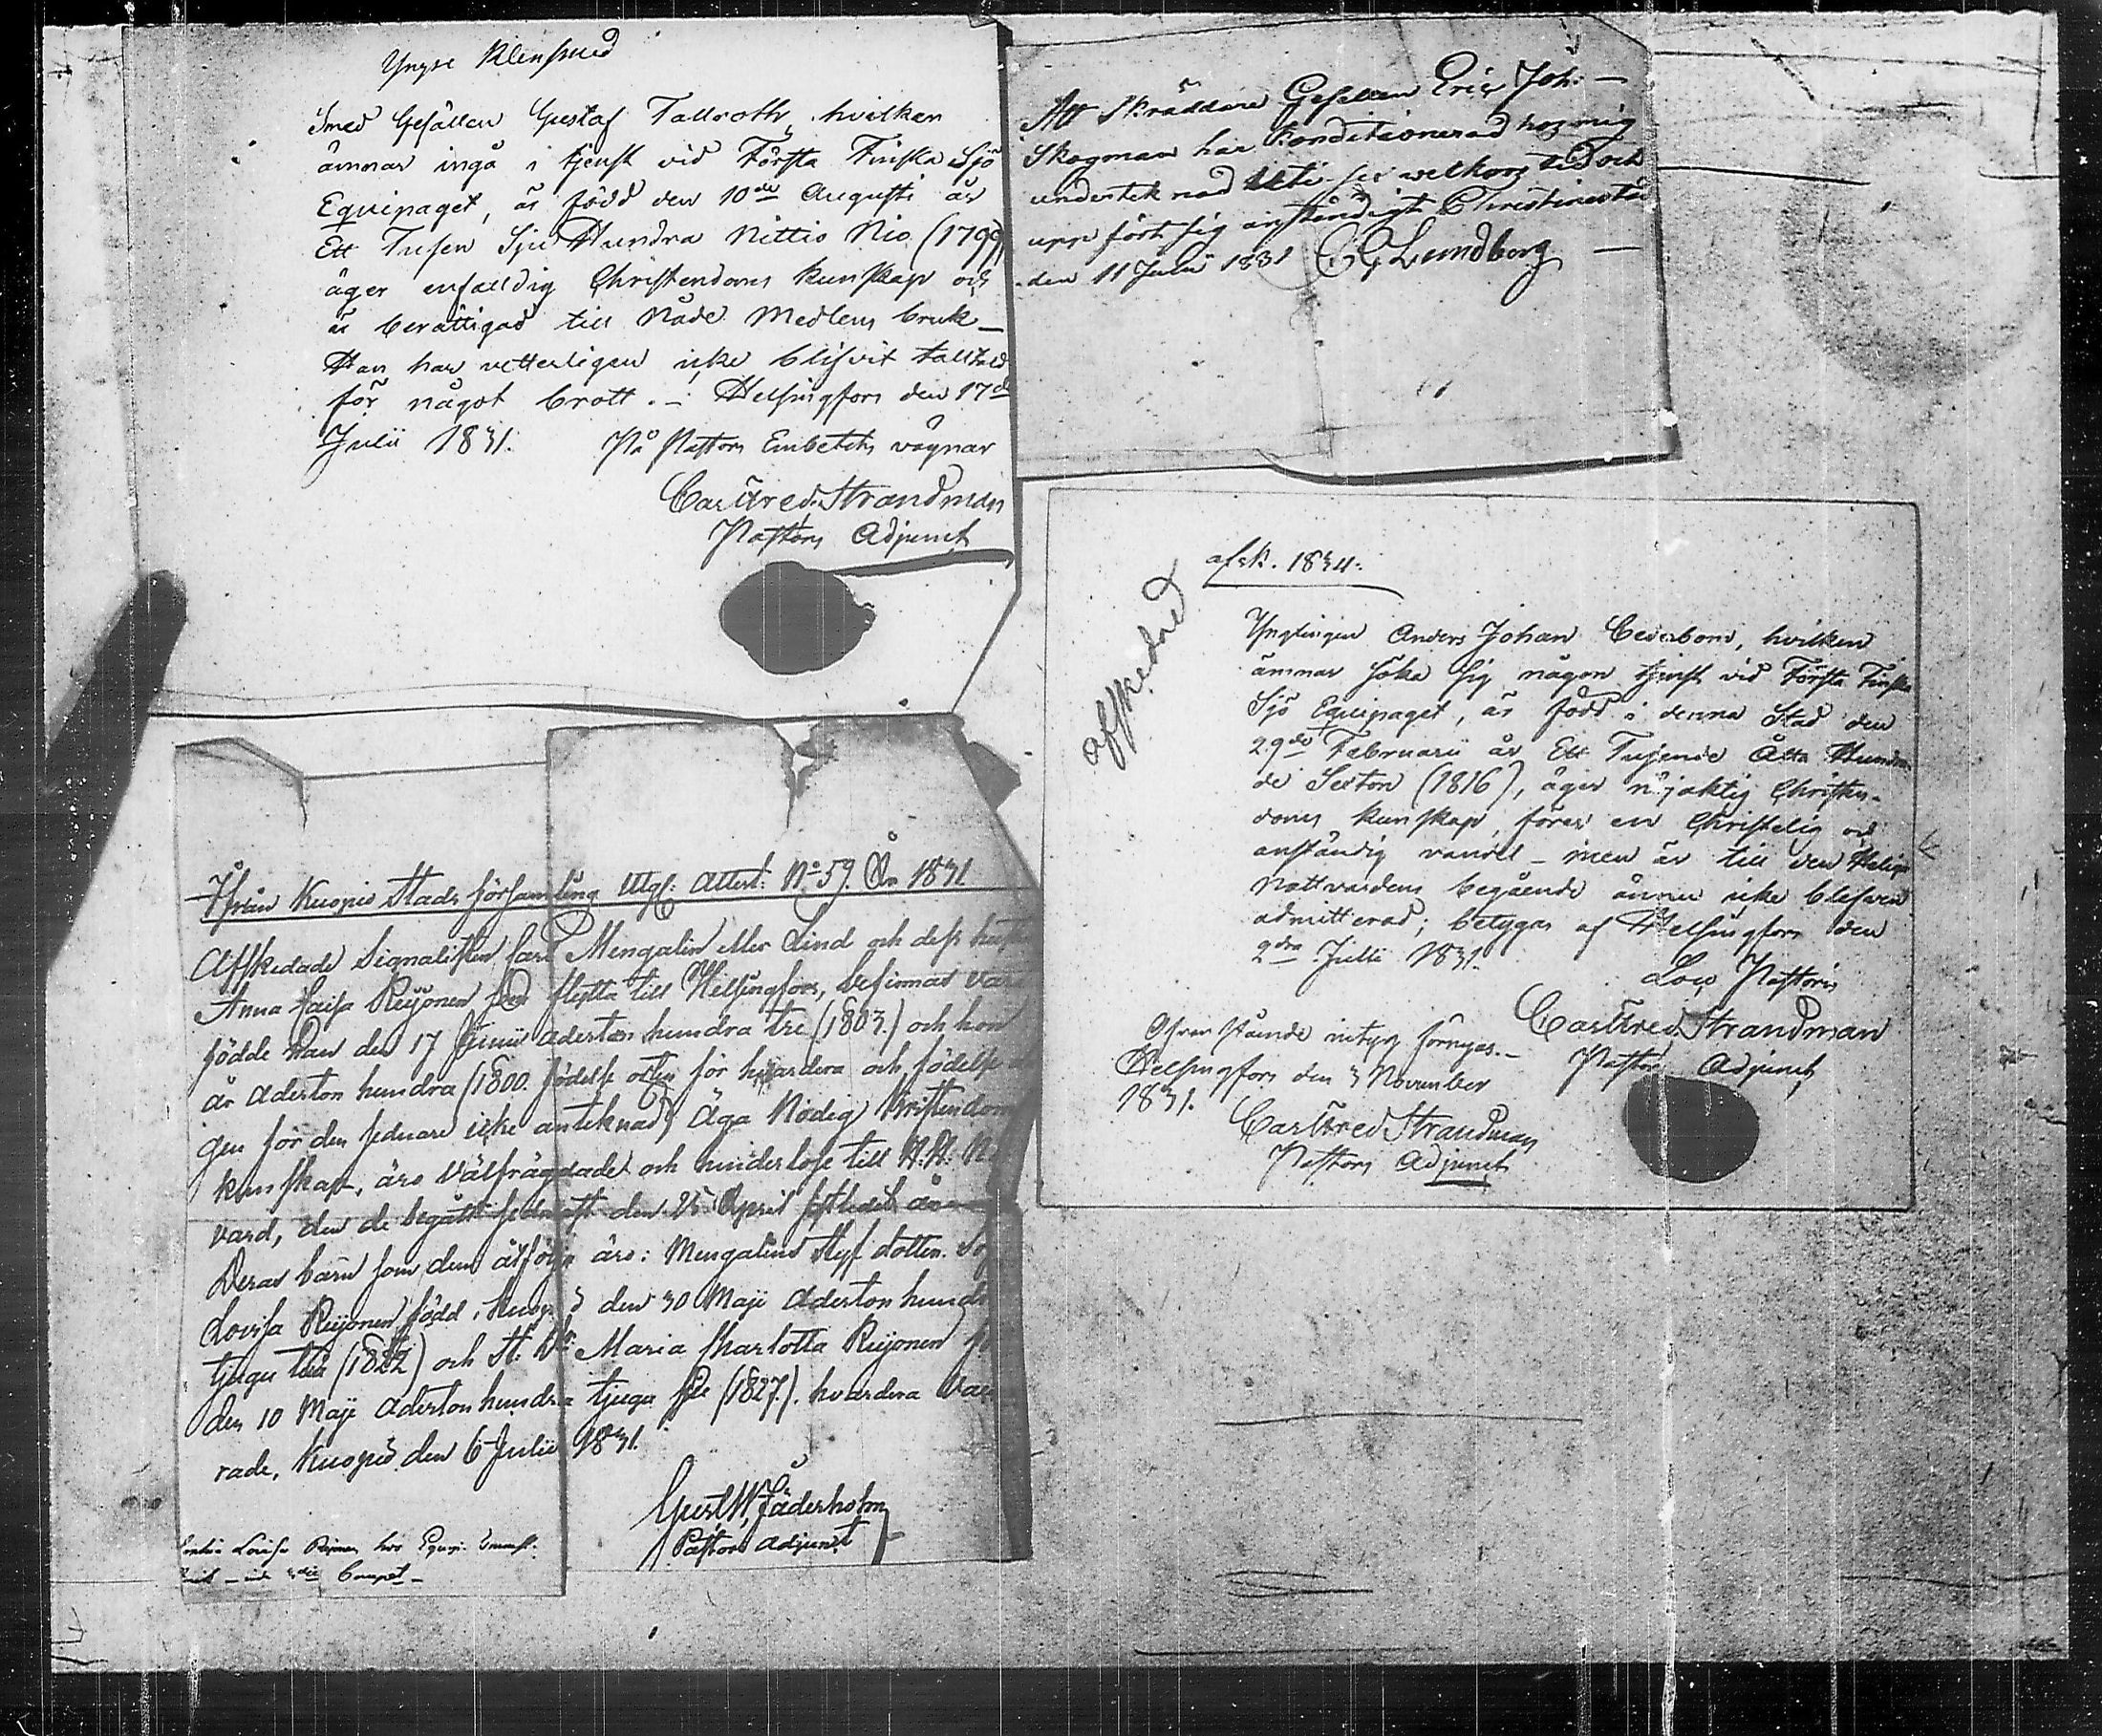 Yngre Klensmed
Smed Gesällen Gustaf Tallroth, hvilken
ämnar ingå i tjenst vid Första Finska Sjö
Equipaget, är född den 10de Augusti år
Ett Tusen Sju Hundra Nittio Nio (1799)
äger enfaldig Christendoms kunskap och
är berättigad till Nåde Medlens bruk_
Han har vetterligen icke blifvit talltald
för något brott. _ Helsingfors den 17de
Julii 1831. På Pastors Embetets vägnar
Carl Fred. Strandman
Pastors Adjunct
Att Skräddare Gesellen Eric Joh: —
Skogman har Konditionerad hos mig
underteknad til och
upp fört sig anständigt Christinestad
den 11 Junii 1831 C G Lundborg —
afsk. 1834.
afskedad
Ynglingen Anders Johan Cederbom, hvilken
ämnar söka sig någon tjenst vid Första Finska
Sjö Equipaget, är född i denna Stad den
29de Februarii år Ett Tusende Åtta Hundra
de Sexton (1816), äger nöjaktig Christen-
doms kunskap, förer en Christelig och
anständig vandel _ men är till den Helige
Nattvardens begående ännu icke blefven
admitterad; betygas af Helsingfors den
2dra Julii 1831.
Loco Pastoris
Carl Fred. Strandman
Pastors Adjunct
Ofvanstående intyg förnyas. _
Helsingfors den 3 November
1831.
Carl Fred Strandman
Pastors Adjunct
Ifrån Kuopio Stads församling Utgl: Attest: No 59. År 1831
Afskedade Signalisten Carl Mengalin eller Lind och dess hustru
Anna Caisa Reijonen som flytta till Helsingfors, befinnas vara
födde han den 17 Junii Aderton hundra tre (1803.) och hon
år Aderton hundra (1800. födelse orten för hvardera och födelse da
gen för den sednare icke anteknad) Äga Nödig Kristendoms
kunskap, äro Välfrägdade och hinderlöse till H. H. N
vard, den de begått sednast den 25 April sistledet år
Deras barn som dem åtfölja äro: Mengalins Styf dotter Sof
Lovisa Reijonen född i Kuopio den 30 Maji Aderton hundra
tjugu två (1822) och St. Dr. Maria Charlotta Reijonen fö
den 10 Maji Aderton hundra tjugu sju (1827.). hvardera Vac
rade, Kuopio den 6 Julii 1831.
Gust. W. Jäderholm
Pastors Adjunct
Lovisa Reijonen hos Equip.
Compet _